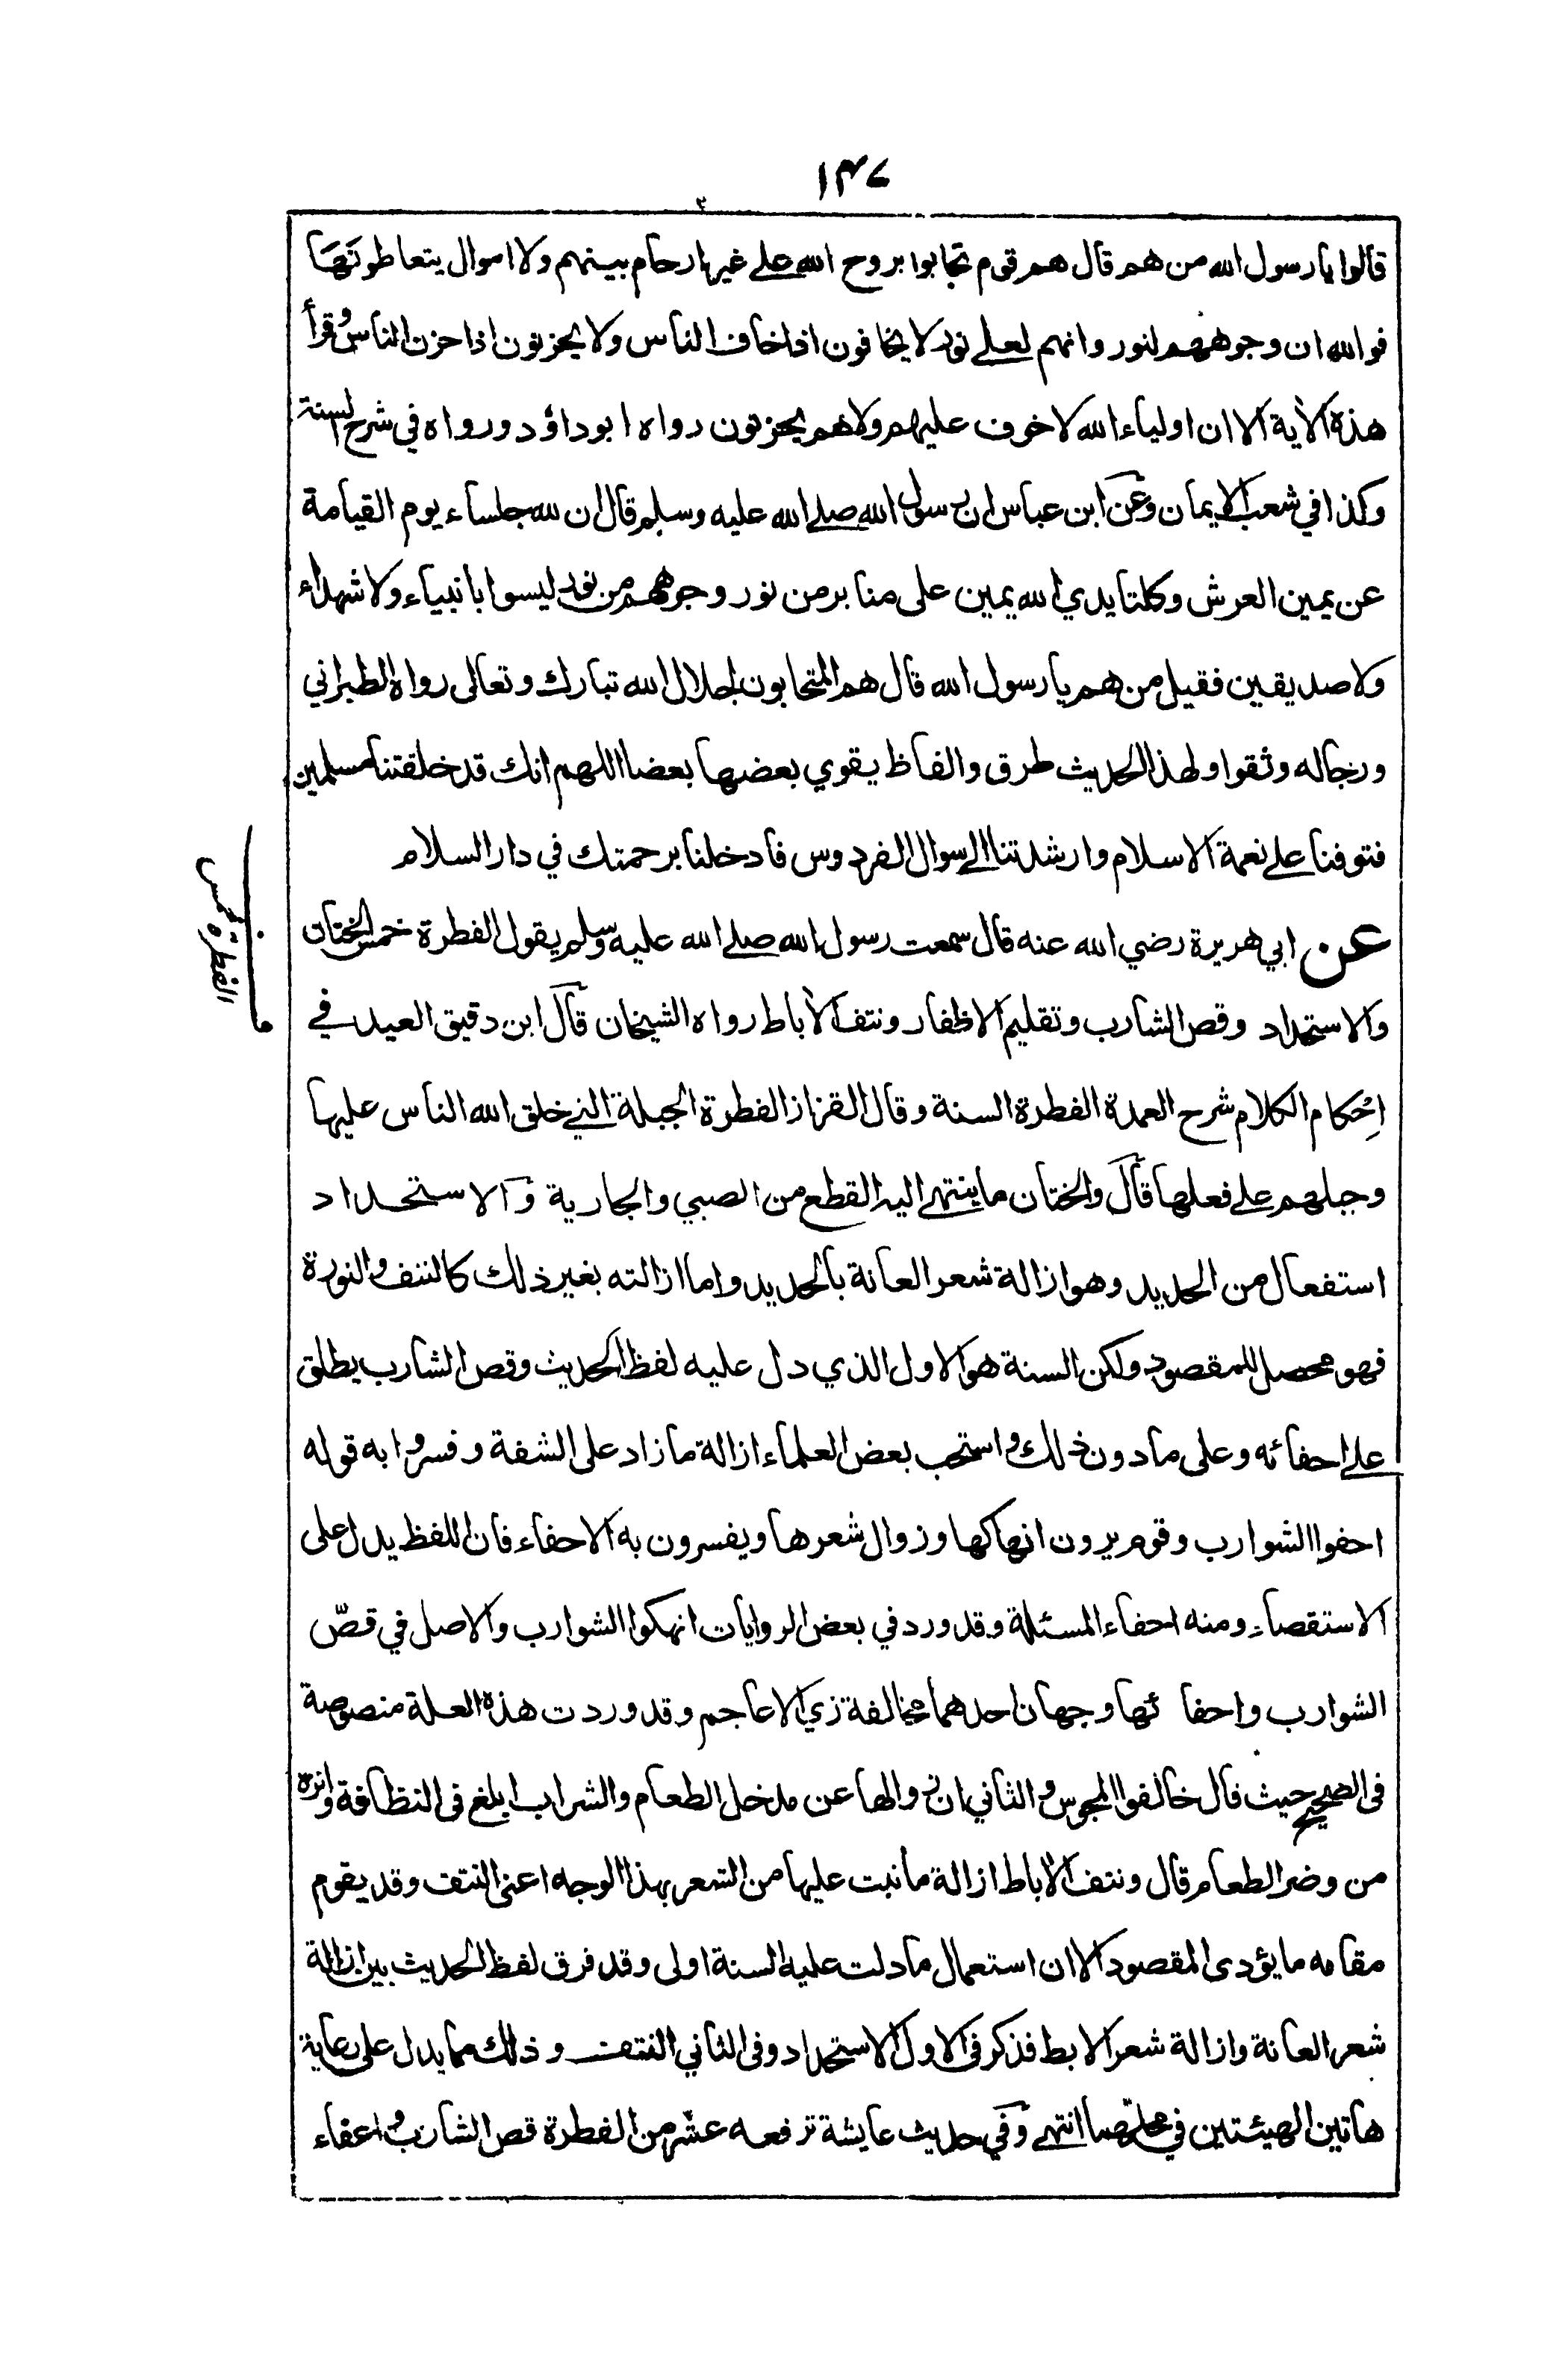 ۱۴۷
قالوا يا رسول الله من هم قال هم قوم تحابوا بروح الله على غير ارحام بينهم ولا اموال يتعاطونَهَا
فوالله ان وجوههم لنور وانهم لعلى نور لا يخافون اذا خاف الناس ولا يحزنون اذا حزن الناس وقرأ
هذه الاٰية الا ان اولياء الله لا خوف عليهم ولا هم يحزنون رواه ابوداؤد ورواه في شرح السنة
وكذا في شعب الايمان وعن ابن عباس ان رسول الله صلى الله عليه وسلم قال ان لله جلساء يوم القيامة
عن يمين العرش وكلتا يدي الله يمين على منابر من نور وجوههم من نور ليسوا بانبياء ولا شهداء
ولا صديقين فقيل من هم يا رسول الله قال هم المتحابون لجلال الله تبارك وتعالى رواه الطبراني
ورجاله وثقوا ولهذا الحديث طرق والفاظ يقوي بعضها بعضا اللهم انك قد خلقتنا مسلمين
فتوفنا على نعمة الاسلام وارشدتنا الى سوال الفردوس فادخلنا برحمتك في دار السلام
عن ابي هريرة رضي الله عنه قال سمعت رسول الله صلى الله عليه وسلم يقول الفطرة خمس الختان
والاستحداد وقص الشارب وتقليم الاظفار ونتف الاٰباط رواه الشيخان قال ابن دقيق العيد في
اِحْكام الكلام شرح العمدة الفطرة السنة وقال القزاز الفطرة الجبلة التي خلق الله الناس عليها
وجبلهم على فعلها قال والختان ما ينتهى اليه القطع من الصبي والجارية والاستحداد
استفعال من الحديد وهو ازالة شعر العانة بالحديد واما ازالته بغير ذلك كالنتف والنورة
فهو محصل للمقصود ولكن السنة هو الاول الذي دل عليه لفظ الحديث وقص الشارب يطلق
على احفائه وعلى ما دون ذلك واستحب بعض العلماء ازالة ما زاد على الشفة وفسروا به قوله
احفوا الشوارب وقوم يرون انهاكها وزوال شعرها ويفسرون به الاحفاء فان اللفظ يدل على
الاستقصاء ومنه احفاء المسئلة وقد ورد في بعض الروايات انهكوا الشوارب والاصل في قصّ
الشوارب واحفائها وجهان احدهما مخالفة زي الاعاجم وقد وردت هذه العلة منصوصة
فى الصحيح حيث قال خالفوا المجوس والثاني ان زوالها عن مدخل الطعام والشراب ابلغ فى النظافة وانزه
من وضر الطعام قال ونتف الاٰباط ازالة ما نبت عليها من الشعر بهذا الوجه اعنى النتف وقد يقوم
مقامه ما يؤدى المقصود الا ان استعمال ما دلت عليه السنة اولى وقد فرق لفظ الحديث بين ازالة
شعر العانة وازالة شعر الابط فذكر فى الاول الاستحداد وفى الثاني النتف وذلك مما يدل على رعاية
هاتين الهيئتين في محلّهما انتهى وفي حديث عايشة ترفعه عشر من الفطرة قص الشارب واعفاء
الفطرة خمس